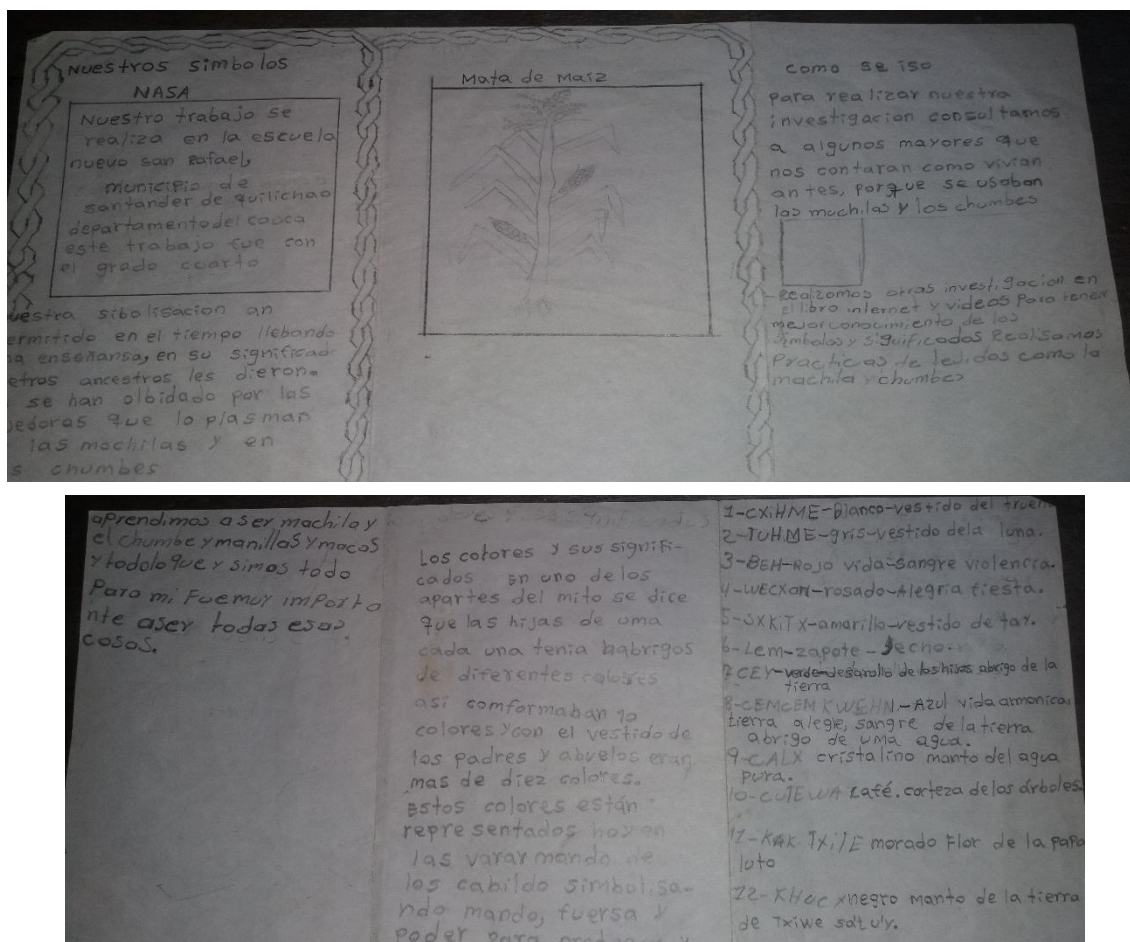 Nuestros simbolos
NASA
Nuestro trabajo se
realiza en la escuela
nuevo san Rafael,
municipio de
santander de quilichao
departamento del cauca
este trabajo fue con
el grado cuarto
uestra sibolisacion an
ermitido en el tiempo llebando
a enseñansa, en su significad
etros ancestros les dieron.
se han olbidado por las
jedoras que lo plasman
las mochilas y en
s chumbes
Mata de Maiz
como se iso
para realizar nuestra
investigacion consultamos
a algunos mayores que
nos contaran como vivian
antes, porque se usaban
las muchilas y los chumbes
-Realizomos otras investigacion en
el libro internet y videos para tener
mejor conocimiento de los
simbolos y significados Realisamos
Practicas de tejidos como la
machila y chumbes
aprendimos aser machila y
el chumbe y manillas y macos
y todo lo que y simos todo
Para mi Fue muy importa
nte aser todas esas
cosas.
Los colores y sus signifi-
cados en uno de los
apartes del mito se dice
que las hijas de uma
cada una tenia habrigos
de diferentes colores
asi comformaban 10
colores y con el vestido de
los padres y abuelos eran
mas de diez colores.
Estos colores están
representados hoy en
las varar mando de
los cabildo simbolisa-
ndo mando, fuersa y
poder para
1-CXiHME-Blanco-vestido del true
2-TUHME-gris-vestido dela luna.
3-BEH-Rojo vida-sangre violencia.
4-WECXan-rosado-Alegria fiesta.
5-SXKiTX-amarillo-vestido de tay.
6-Lem-zapote-
7 CEY-verde-desarollo de los hijos abrigo de la
tierra
8-CEMCEM KWEHN.-Azul vida armonica,
tierra alegre, sangre de la tierra
abrigo de uma agua.
9-CALX cristalino manto del agua
pura.
10-CUTEWA café. corteza de los árboles.
11-KAK TXiTE morado Flor de la papa
luto
12-KHUC xnegro manto de la tierra
de Txiwe sat u'y.